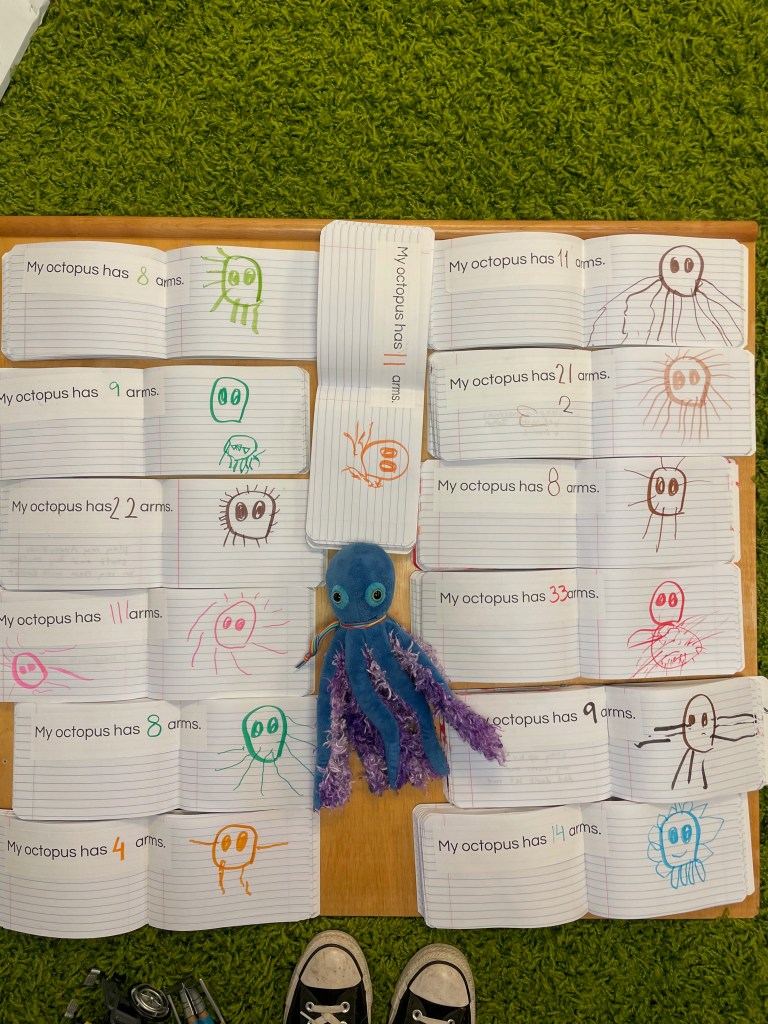 My octopus has 8 arms.
My octopus has 9 arms.
My octopus has 22 arms.
My octopus has 111 arms.
My octopus has 8 arms.
My octopus has 4 arms.
My octopus has 11 arms.
My octopus has 11 arms.
My octopus has 21 arms.
2
My octopus has 8 arms.
My octopus has 33 arms.
My octopus has 9 arms.
My octopus has 14 arms.